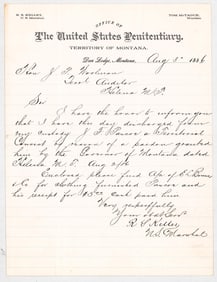 OFFICE OF
The United States Penitentiary,
TERRITORY OF MONTANA.
Deer Lodge, Montana, Aug 5" 1886
Hon J. P. Woolman
Terr. Auditor
Helena M.T.
Sir
I have the honor to inform you
that I have this day discharged from
my custody J. F. a Territorial
Convict by reason of a pardon granted
him by the Governor of Montana dated
Helena M.T. Aug 3/86
Enclosed please find
for clothing furnished and
his receipt for $ cash paid him
Very respectfully
Your Obt Serv
R. S. Kelley
U.S. Marshal